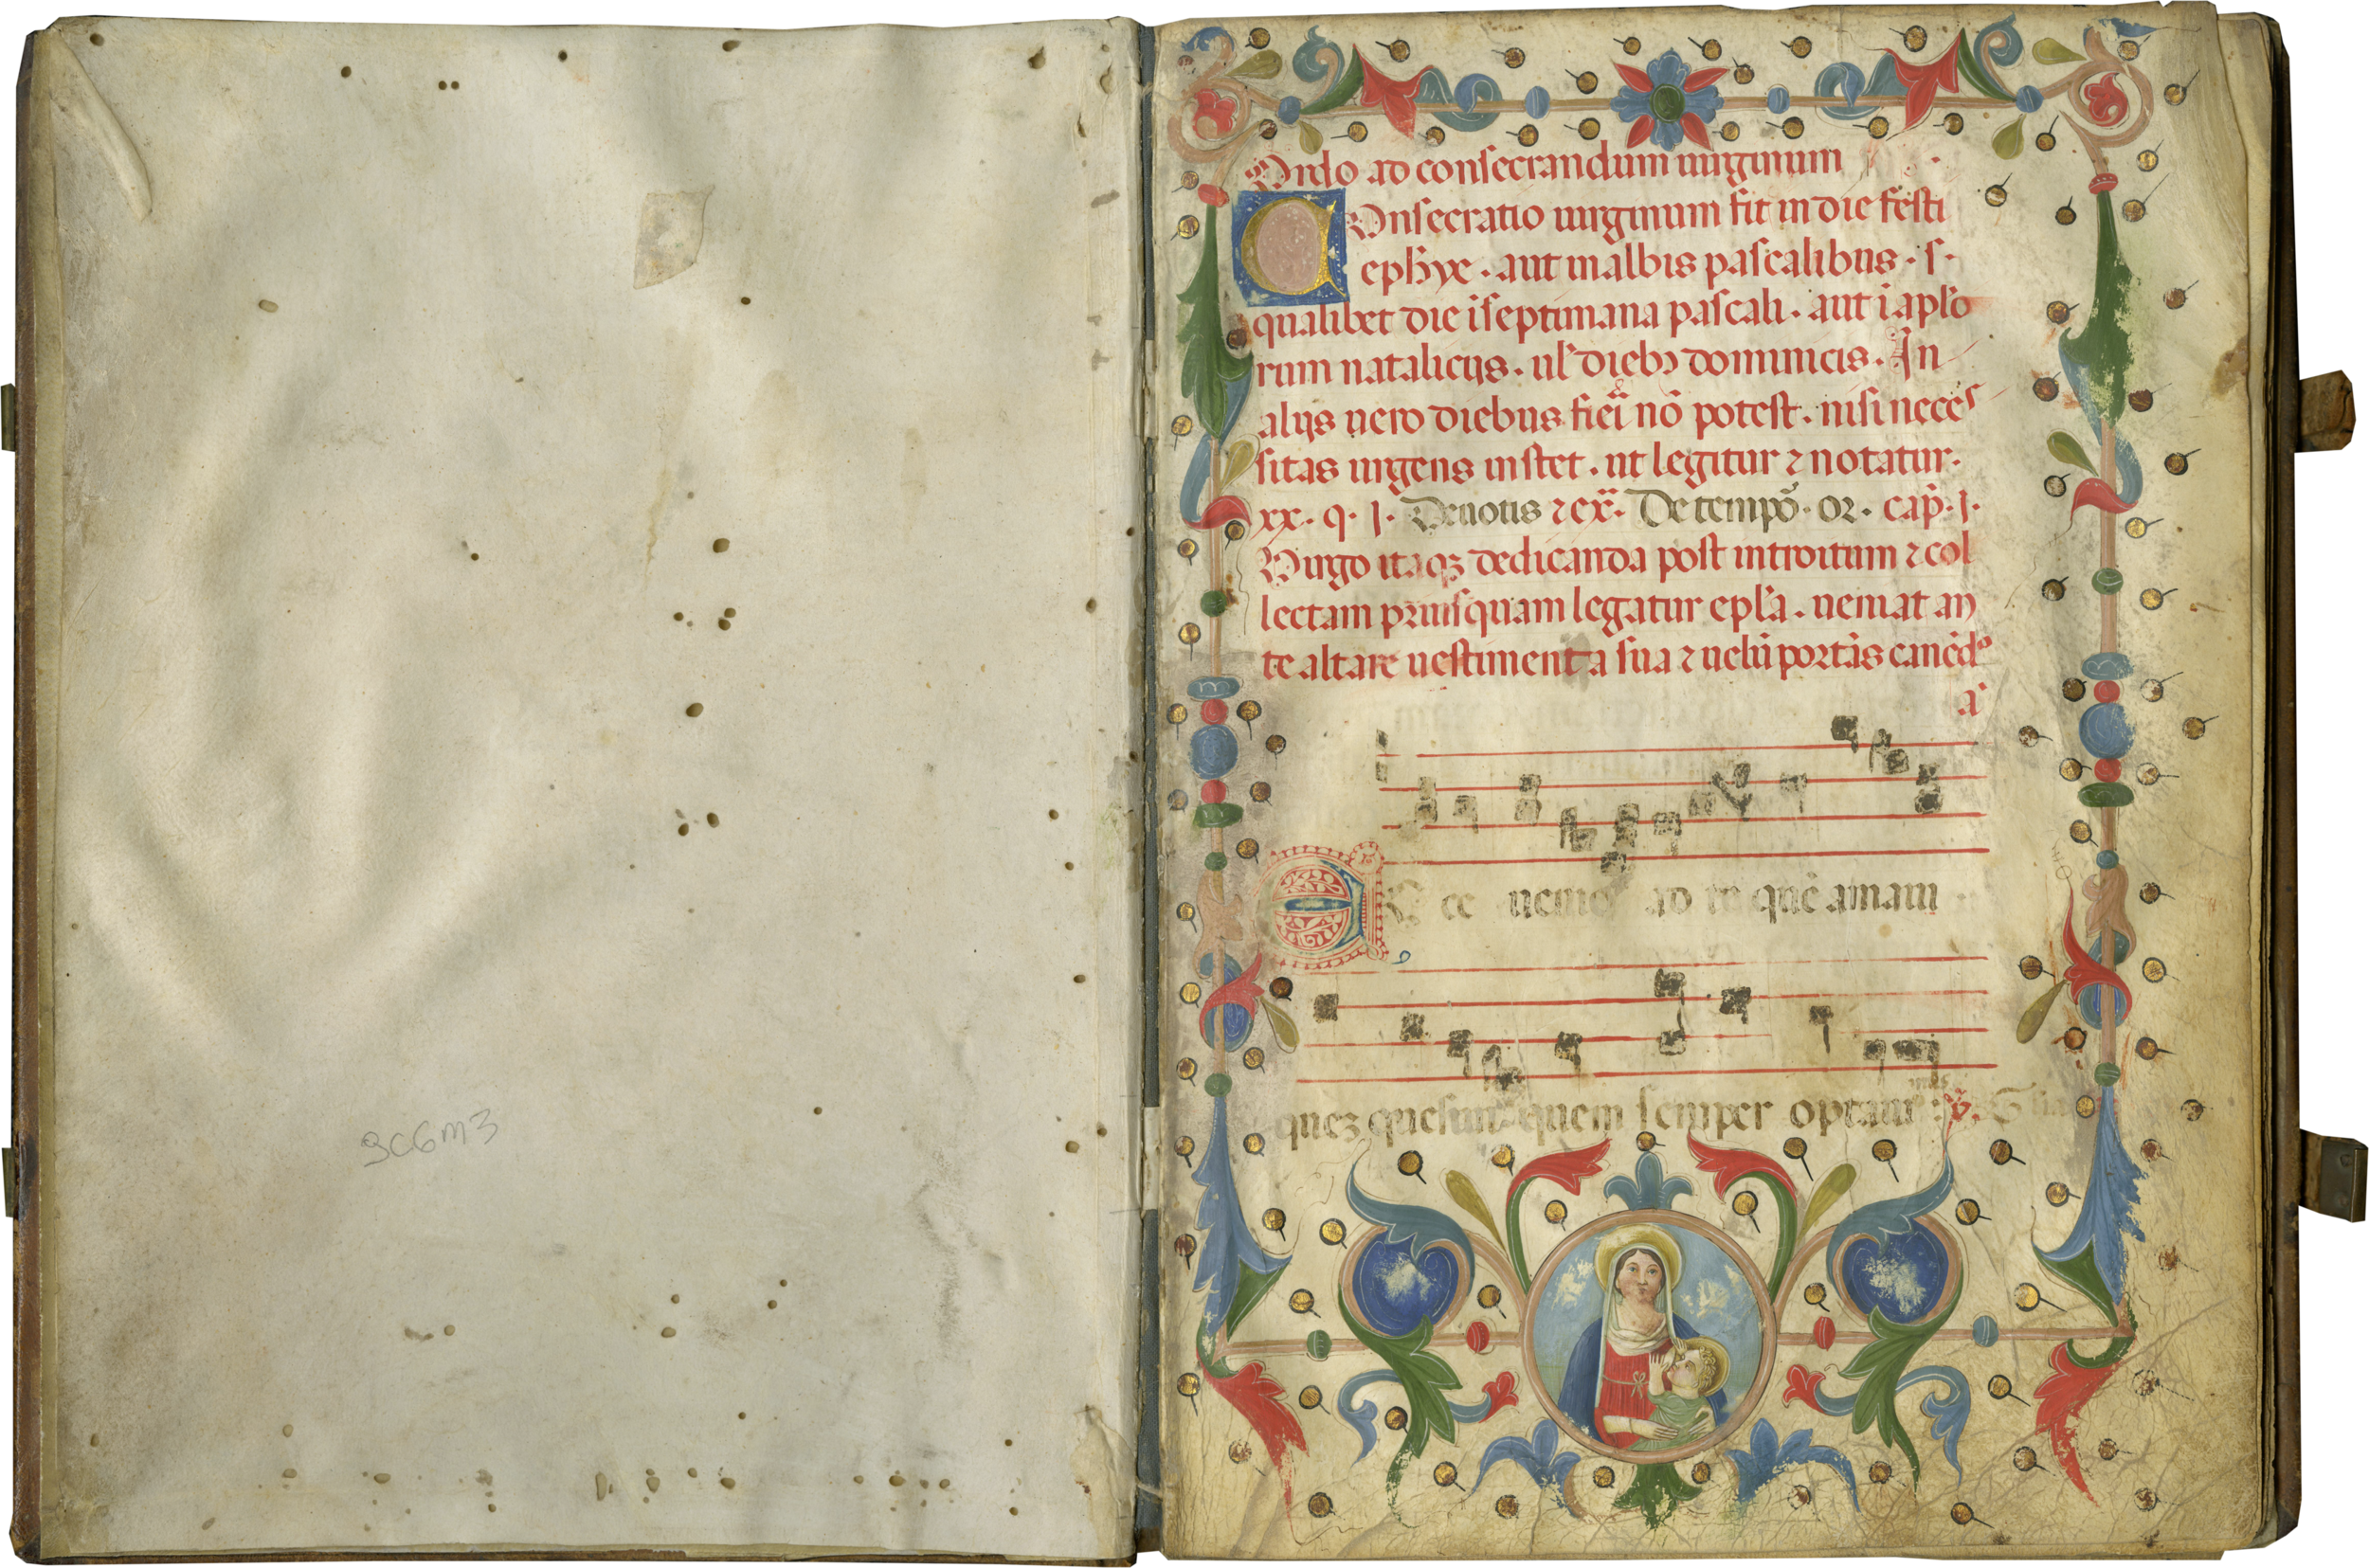 3C6M3
Ordo ad consecrandum uirginum
COnsecratio uirginum fit in die festi
ephye . aut in albis pascalibus . s .
qualibet die i septimana pascali . aut i aplo
rum natalicijs . ul' dieb; dominicis . In
alijs uero diebus fieri nō potest . nisi neces
sitas urgens instet . ut legitur ⁊ notatur .
xx . q . j . Deuotis ⁊ ex̄ . De tempō . or . cap̄ . j .
Virgo itaq; dedicanda post introitum ⁊ col
lectam priusquam legatur epl'a . ueniat an
te altare uestimenta sua ⁊ uelū portās canēdo
a
Ecce uenio ad te quē amaui
quez quesiui quem semper optaui